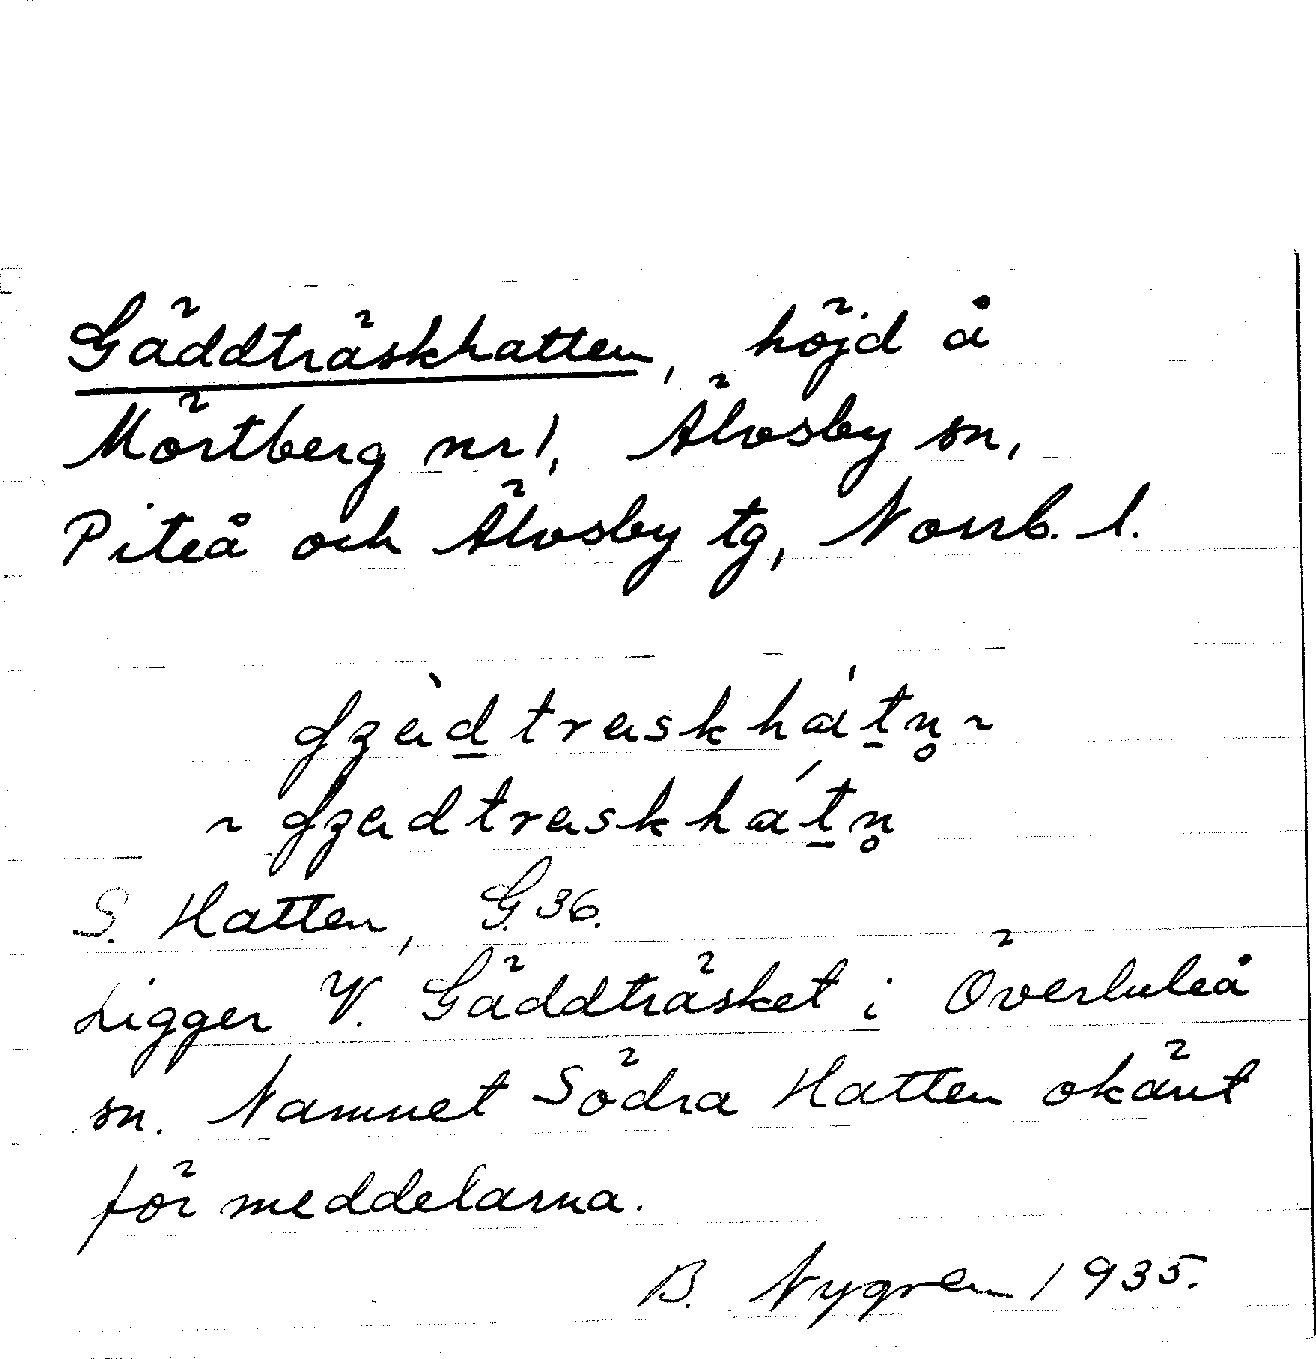 Gäddträskhatten, höjd å
Mörtberg nr 1, Älvsby sn,
Piteå och Älvsby tg, Norrb. l.
S. Hatten, G. 36.
Ligger V. Gäddträsket i Överluleå
sn. Namnet Södra Hatten okänt
för meddelarna.
B. Nygren 1935.